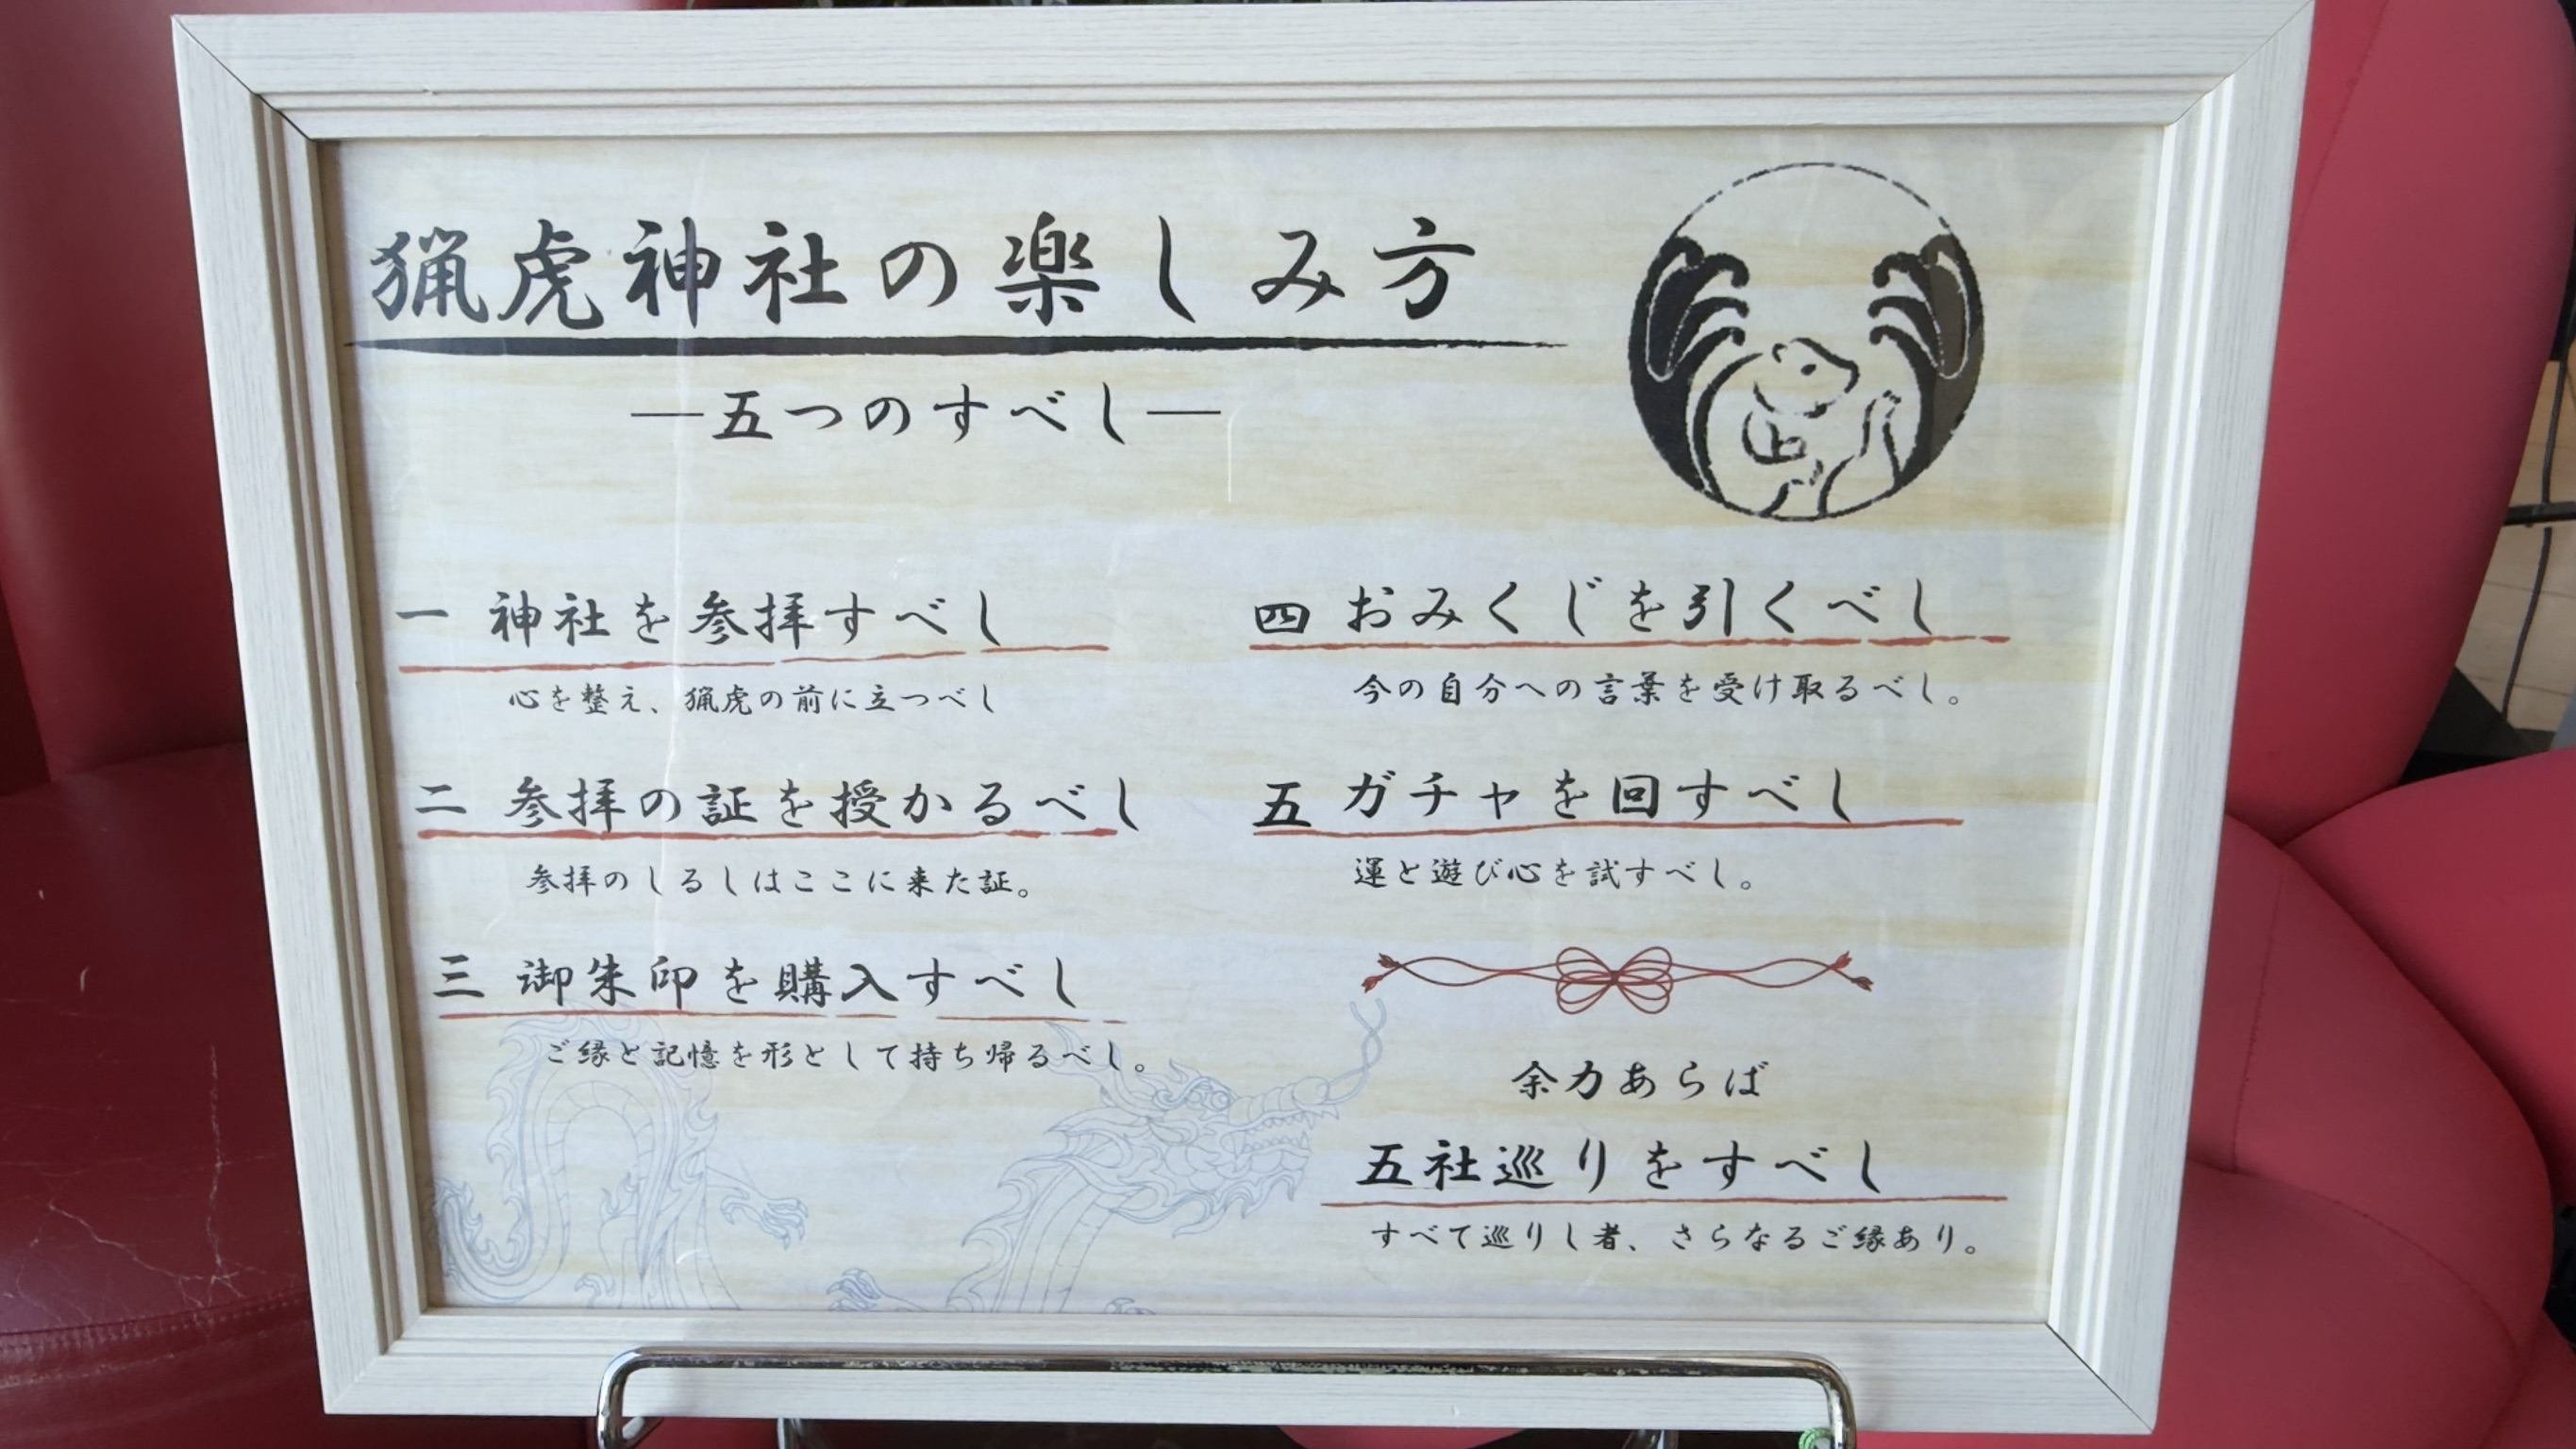 猟虎神社の楽しみ方
―五つのすべし―
一 神社を参拝すべし
心を整え、猟虎の前に立つべし
二 参拝の証を授かるべし
参拝のしるしはここに来た証。
三 御朱印を購入すべし
ご縁と記憶を形として持ち帰るべし。
四 おみくじを引くべし
今の自分への言葉を受け取るべし。
五 ガチャを回すべし
運と遊び心を試すべし。
余力あらば
五社巡りをすべし
すべて巡りし者、さらなるご縁あり。